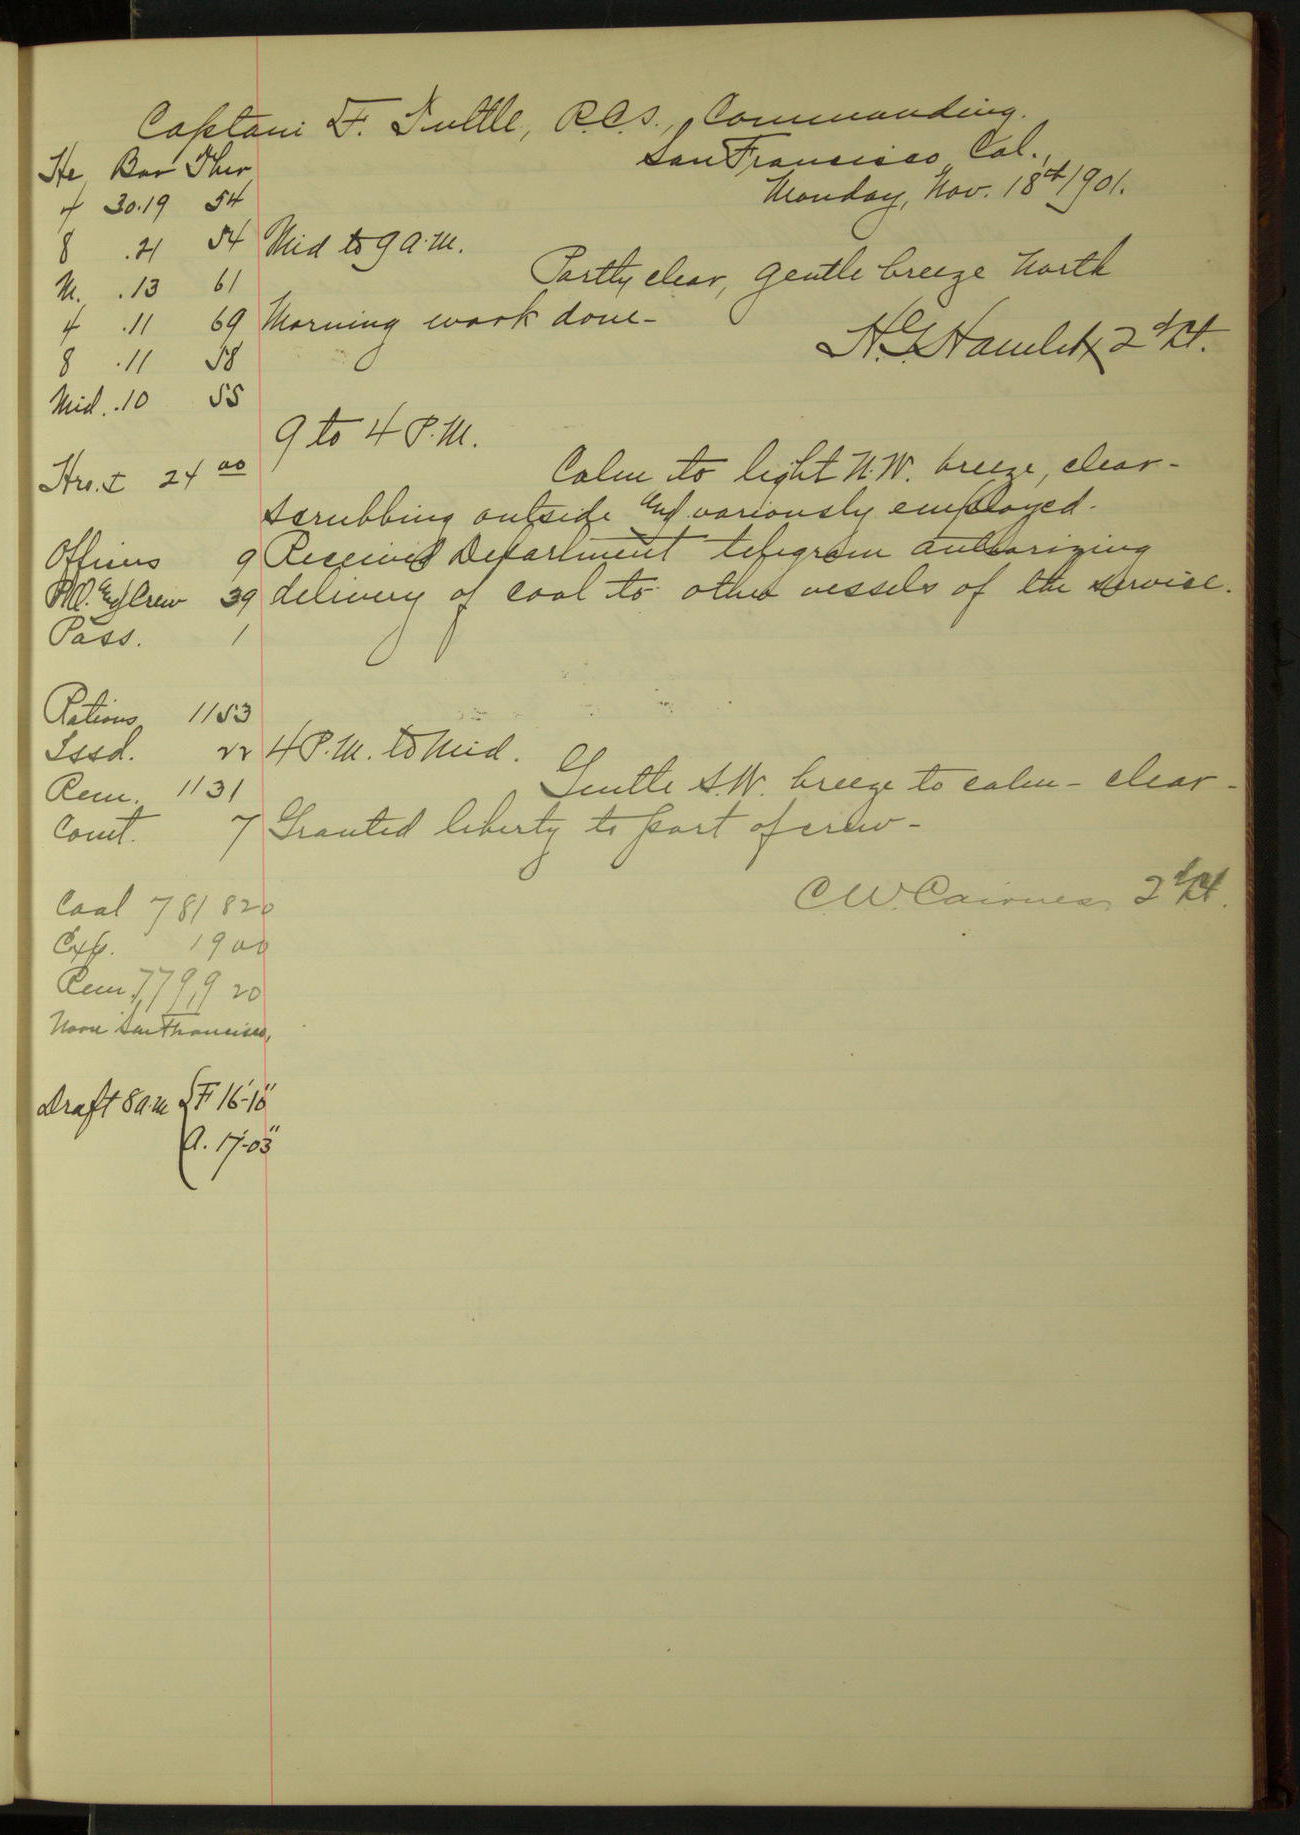 Captain F. Tuttle, R.C.S., Commanding.
San Francisco, Cal.,
Monday, Nov. 18th 1901.
He Bar Ther
4 30.19 54
8 .21 54
M. .13 61
4 .11 69
8 .11 58
Mid. .10 55
Hrs. I 24 00
Officers 9
P.O. and Crew 39
Pass. 1
Rations 1153
Issd. 22
Rem. 1131
Comt. 7
Coal 781 820
Exp. 1900
Rem 779,920
Noon San Francisco,
Draft 8 a.m. F 16'-10"
A. 17'-03"
Mid to 9 A.M.
Partly clear, gentle breeze North
Morning work done-
H.G. Hamlet, 2d Lt.
9 to 4 P.M.
Calm to light N.W. breeze, clear-
scrubbing outside and variously employed.
Received Department telegram authorizing
delivery of coal to other vessels of the service.
4 P.M. to Mid.
Gentle S.W. breeze to calm - clear -
Granted liberty to part of crew-
C.W. Cairnes 2d Lt.